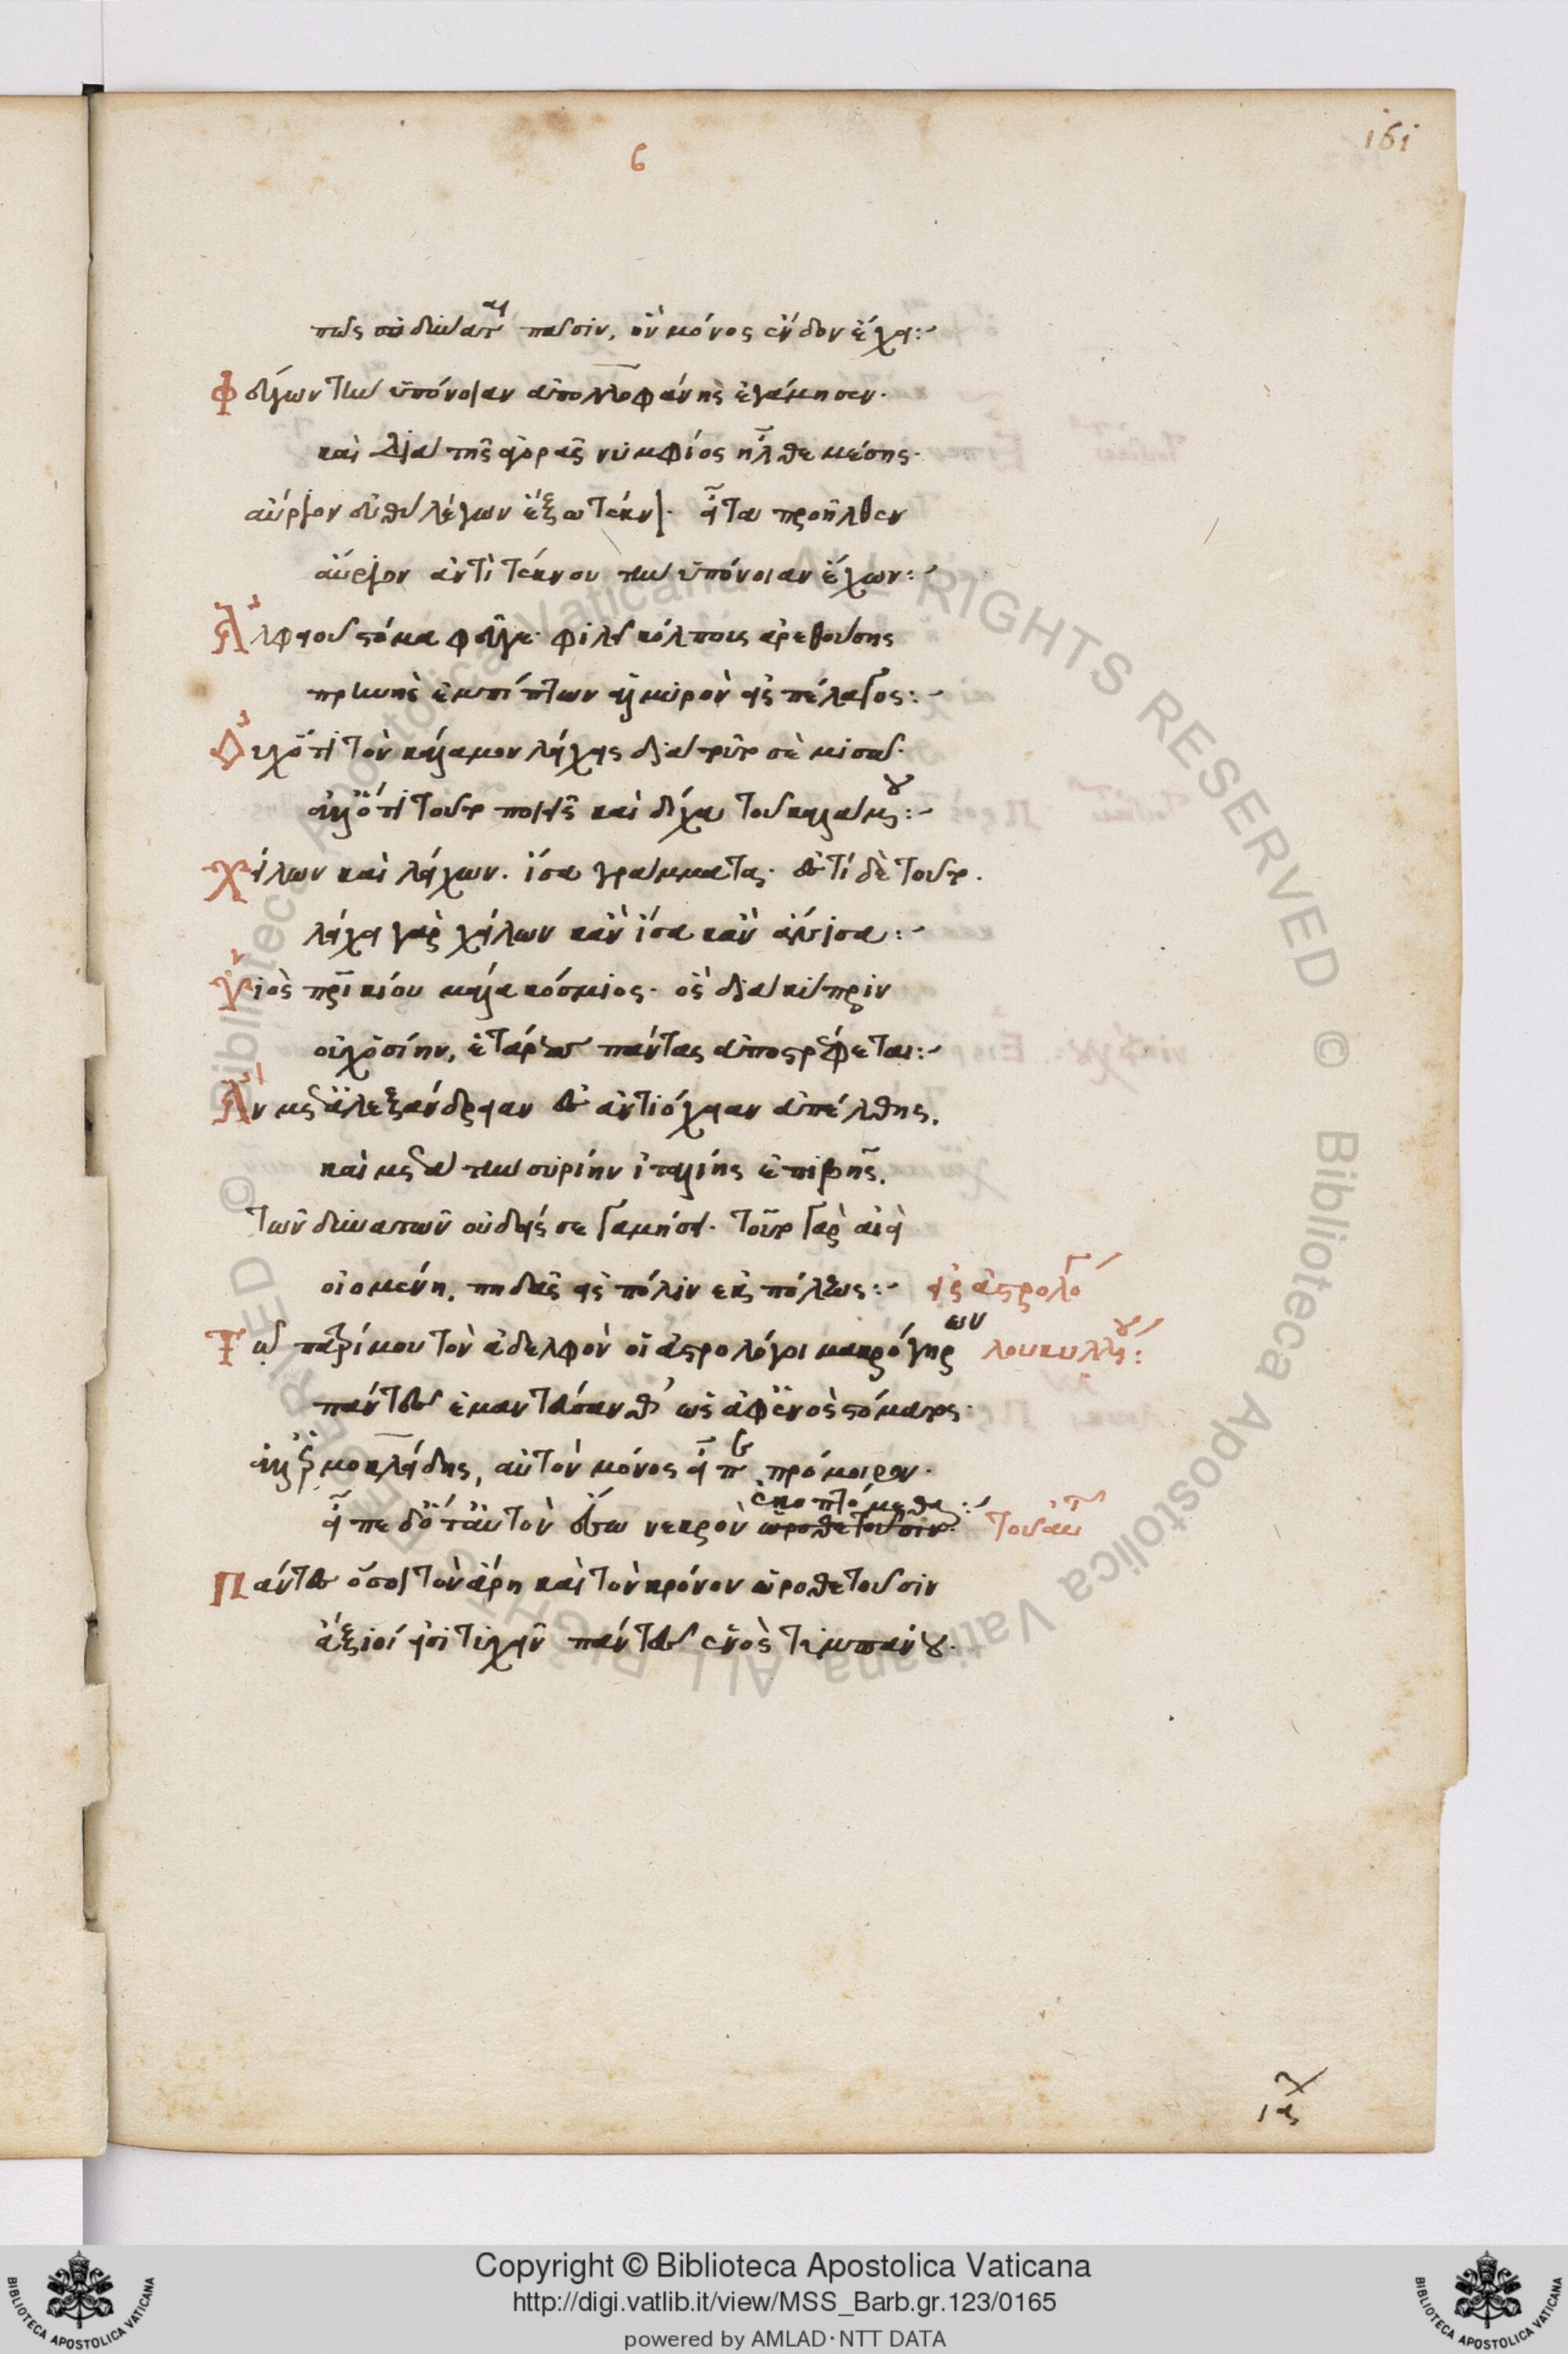 161
6
πῶς οὐ δύναται πᾶσιν, ὃν μόνος ἔνδον ἔχει:
Φεύγων τὴν ὑπόνοιαν ἀπολλοφάνης ἐγάμησεν.
καὶ διὰ τῆς ἀγορᾶς νυμφίος ἦλθε μέσης.
αὔριον εὐθὺ λέγων ἕξω τέκνον. εἶτα προῆλθεν
αὔριον ἀντὶ τέκνου τὴν ὑπόνοιαν ἔχων:
Ἀλφειοῦ στόμα φεῦγε. φιλεῖ κόλπους ἀρεθούσης
πρηνὴς ἐμπίπτων ἁλμυρὸν εἰς πέλαγος:
Οὐχ ὅτι τὸν κάλαμον λείχεις διὰ τοῦτό σε μισῶ.
ἀλλ' ὅτι τοῦτο ποιεῖς καὶ δίχα τοῦ καλάμου:
Χείλων καὶ λείχων. ἴσα γράμματα. ἐς τί δὲ τοῦτο.
λείχει γὰρ χείλων κἂν ἴσα κἂν ἄνισα:
Υἱὸς πατρικίου μάλα κόσμιος. ὃς διὰ κύπριν
οὐχ ὁσίην, ἑτάρους πάντας ἀποστρέφεται:
Ἂν μετ' ἀλεξάνδρειαν ἐς ἀντιόχειαν ἀπέλθῃς,
καὶ μετὰ τὴν συρίην ἰταλίης ἐπιβῇς,
τῶν δυνατῶν οὐδείς σε γαμήσει. τοῦτο γὰρ αἰεὶ
οἰομένη, πηδᾷς εἰς πόλιν ἐκ πόλεως: εἰς ἀστρολόγ
Τῶν πατρί μου τὸν ἀδελφὸν οἱ ἀστρολόγοι μακρόγηρων λουκυλλίου:
πάντες ἐμαντεύσανθ' ὡς ἀφ' ἑνὸς στόματος.
ἀλλ' ἑρμοκλείδης, αὐτὸν μόνος εἶπε πρόμοιρον.
εἶπε δ' ὅτ' αὐτὸν ἔσω νεκρὸν ὡροθετοῦσιν ἐκοπτόμεθα: τοῦ αὐτ
Πάντες ὅσοι τὸν ἄρη καὶ τὸν κρόνον ὡροθετοῦσιν
ἄξιοί εἰσι τυχεῖν πάντες ἑνὸς τυμπάνου.
Copyright © Biblioteca Apostolica Vaticana
http://digi.vatlib.it/view/MSS_Barb.gr.123/0165
powered by AMLAD·NTT DATA
BIBLIOTECA APOSTOLICA VATICANA
BIBLIOTECA APOSTOLICA VATICANA
© Biblioteca Apostolica Vaticana ALL RIGHTS RESERVED © Biblioteca Apostolica Vaticana ALL RIGHTS RESERVED